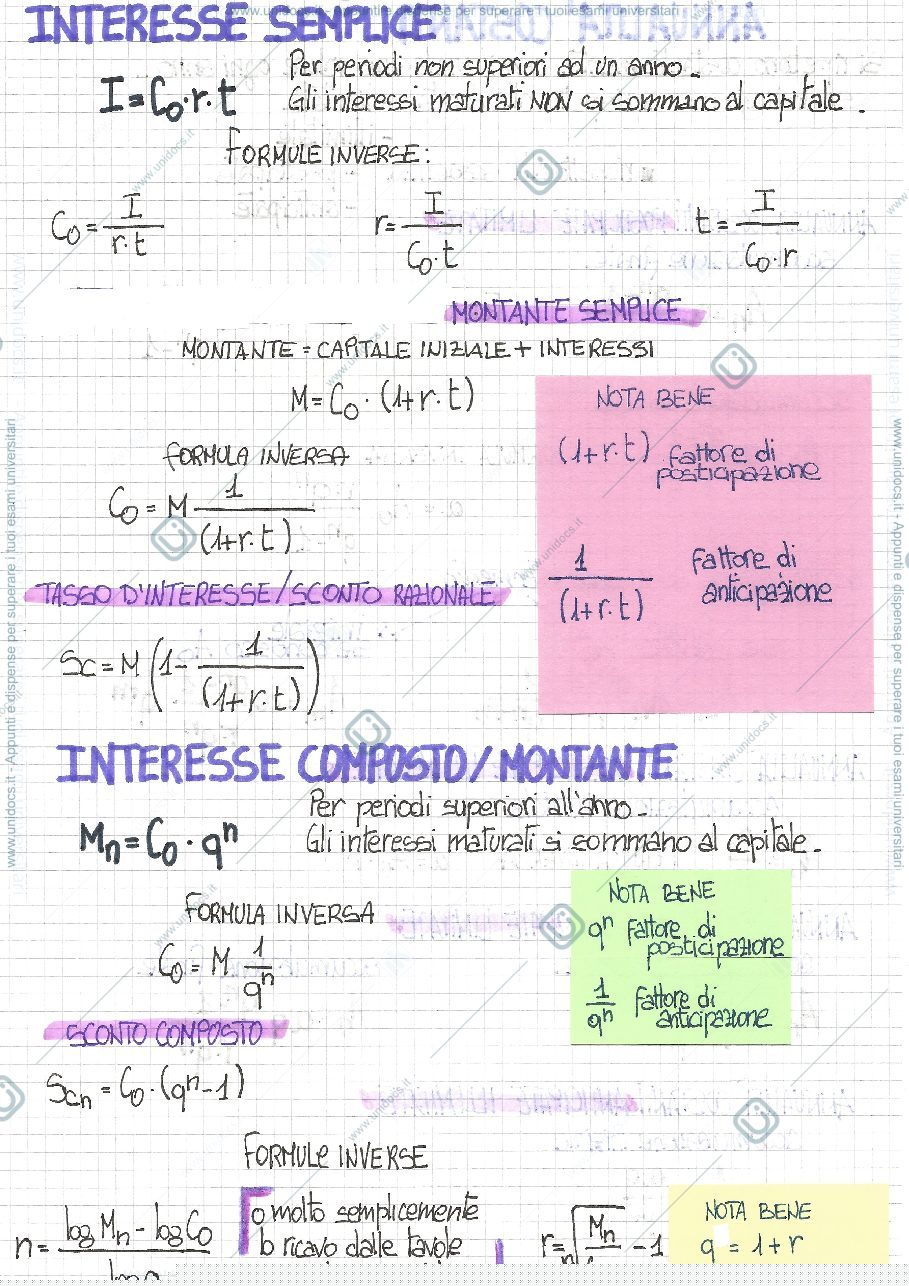 INTERESSE SEMPLICE
I = C₀·r·t
Per periodi non superiori ad un anno.
Gli interessi maturati NON si sommano al capitale.
FORMULE INVERSE:
C₀ = I / r·t
r = I / C₀·t
t = I / C₀·r
MONTANTE SEMPLICE
MONTANTE = CAPITALE INIZIALE + INTERESSI
M = C₀·(1+r·t)
FORMULA INVERSA
C₀ = M 1 / (1+r·t)
NOTA BENE
(1+r·t) fattore di
posticipazione
1 / (1+r·t) fattore di
anticipazione
TASSO D'INTERESSE/SCONTO RAZIONALE
Sc = M (1 - 1 / (1+r·t))
INTERESSE COMPOSTO/MONTANTE
Per periodi superiori all'anno.
Mₙ = C₀·qⁿ
Gli interessi maturati si sommano al capitale.
FORMULA INVERSA
C₀ = M 1 / qⁿ
NOTA BENE
qⁿ fattore di
posticipazione
1 / qⁿ fattore di
anticipazione
SCONTO COMPOSTO
Scₙ = C₀·(qⁿ-1)
FORMULE INVERSE
n = log Mₙ - log C₀
o molto semplicemente
lo ricavo dalle tavole
r = ⁿ√Mₙ - 1
NOTA BENE
q = 1 + r
www.unidocs.it - Appunti e dispense per superare i tuoi esami universitari
www.unidocs.it - Appunti e dispense per superare i tuoi esami universitari
www.unidocs.it